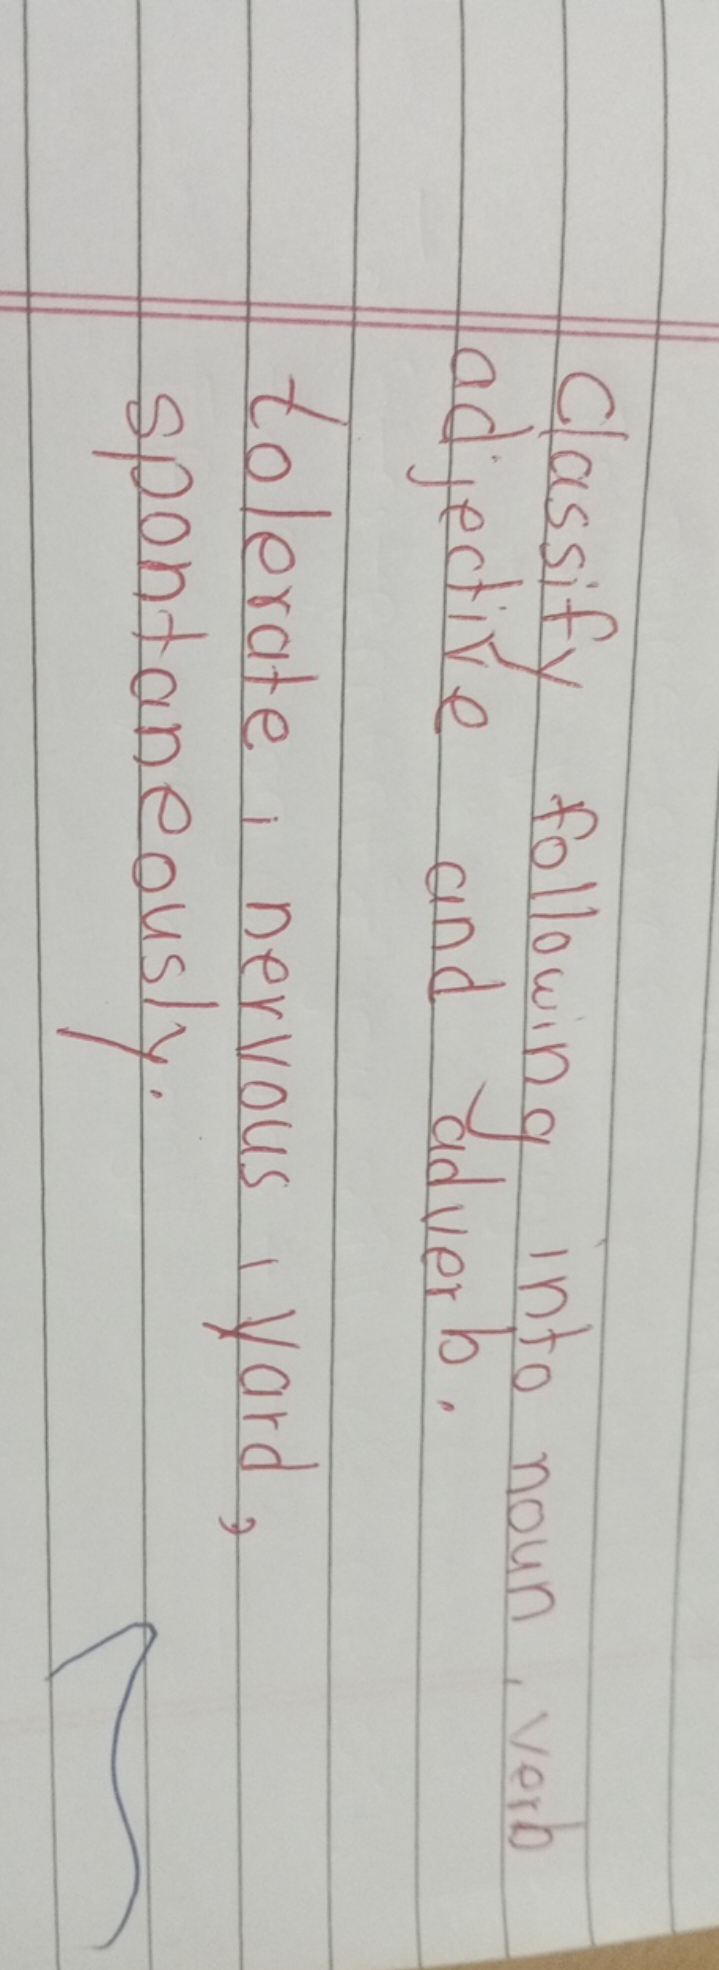 Classify following into noun, verb
adjective and adverb.
tolerate, nervous, Yard,
spontaneously.